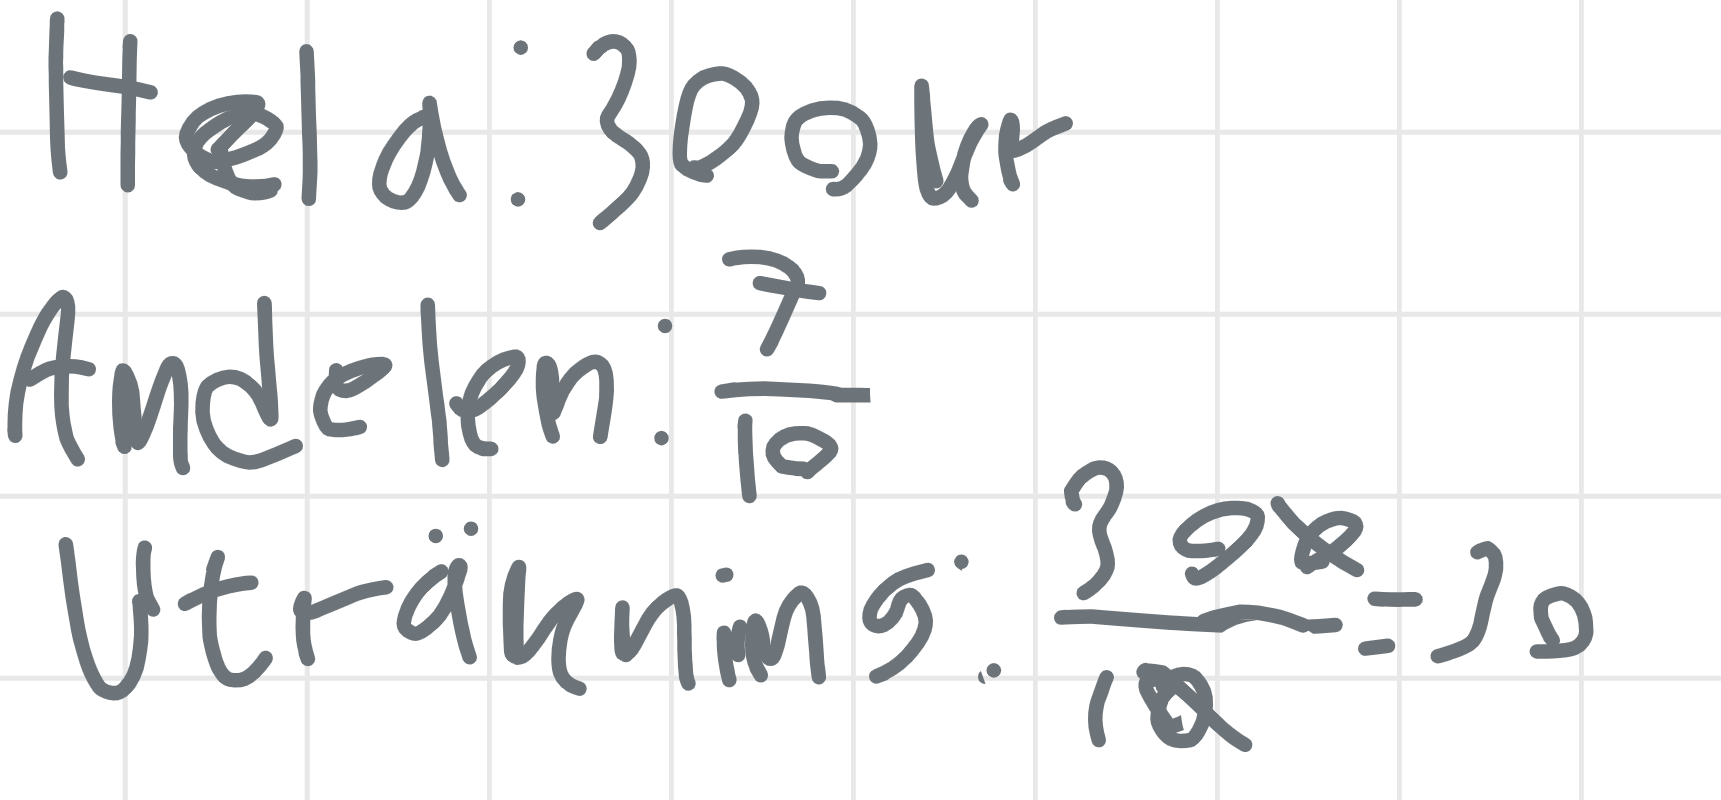 Hela: 300kr
Andelen: 7/10
Uträkning: 300/10 = 30